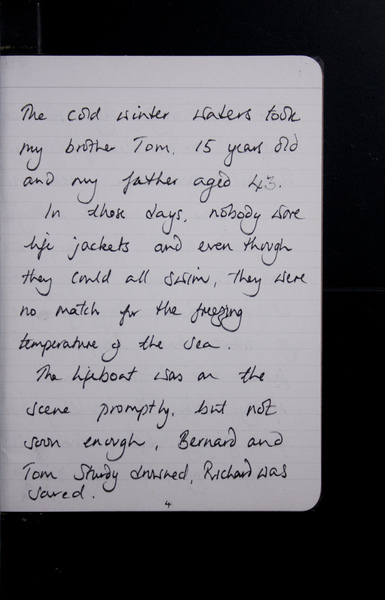 The cold winter waters took
my brother Tom. 15 years old
and my father aged 43.
In those days, nobody wore
life jackets and even though
they could all swim, they were
no match for the freezing
temperature of the sea.
The lifeboat was on the
scene promptly, but not
soon enough, Bernard and
Tom Sturdy drowned, Richard was
saved.
4